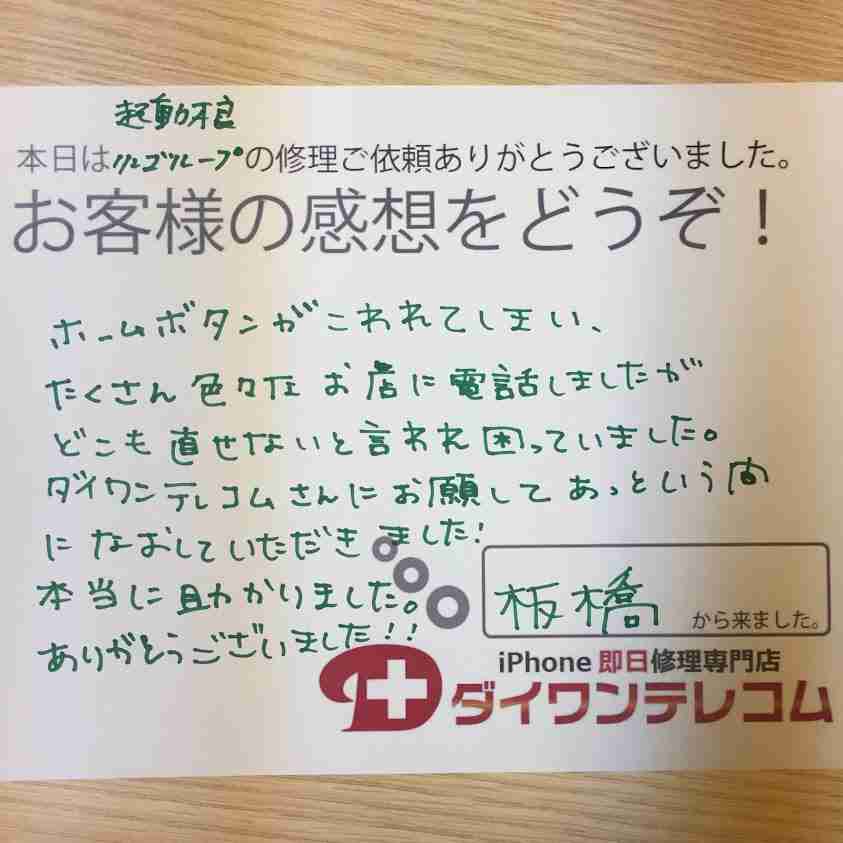 起動不良
本日はリンゴループの修理ご依頼ありがとうございました。
お客様の感想をどうぞ！
ホームボタンがこわれてしまい、
たくさん色々なお店に電話しましたが
どこも直せないと言われ困っていました。
ダイワンテレコムさんにお願いしてあっという間
になおしていただきました!
本当に助かりました。
ありがとうございました!!
板橋から来ました。
iPhone 即日修理専門店
ダイワンテレコム